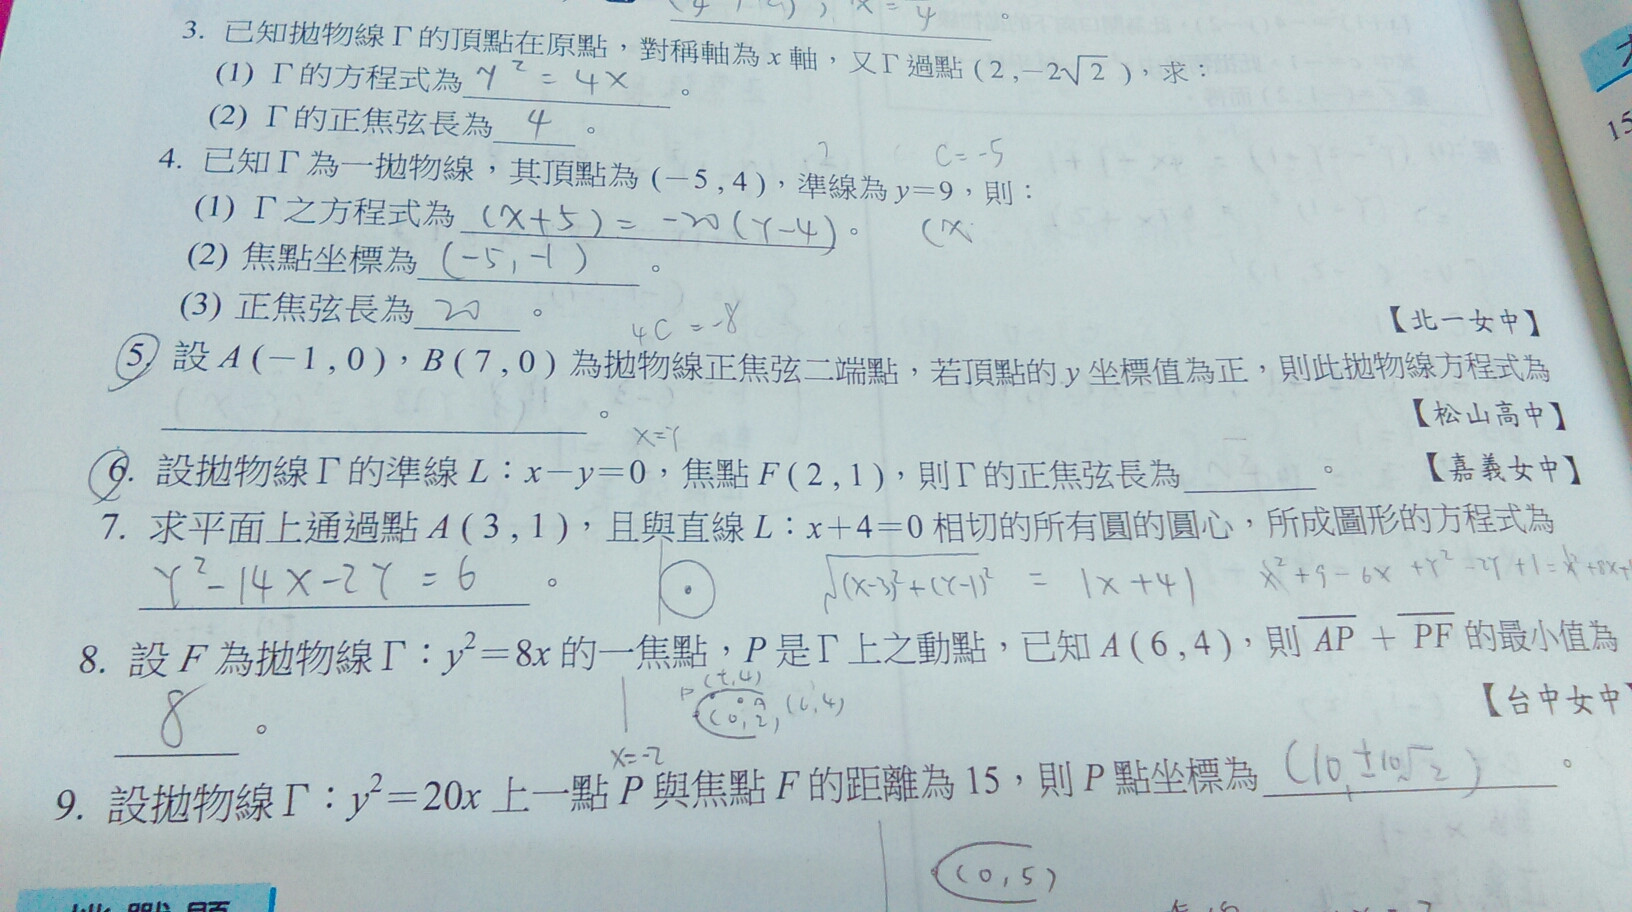 3. 已知拋物線Γ的頂點在原點，對稱軸為 x 軸，又Γ過點 (2,−2√2)，求：
(1) Γ的方程式為 y² = 4x 。
(2) Γ的正焦弦長為 4 。
c = -5
4. 已知Γ為一拋物線，其頂點為 (−5,4)，準線為 y=9，則：
(1) Γ之方程式為 (x+5) = -20(y-4) 。 (x
(2) 焦點坐標為 (-5,-1) 。
(3) 正焦弦長為 20 。
【北一女中】
4c = -8
5. 設 A(−1,0)，B(7,0) 為拋物線正焦弦二端點，若頂點的 y 坐標值為正，則此拋物線方程式為
。 【松山高中】
x=y
6. 設拋物線Γ的準線 L：x−y=0，焦點 F(2,1)，則Γ的正焦弦長為 。 【嘉義女中】
7. 求平面上通過點 A(3,1)，且與直線 L：x+4=0 相切的所有圓的圓心，所成圖形的方程式為
y²-14x-2y = 6 。 √(x-3)²+(y-1)² = |x+4| x²+9-6x+y²-2y+1=x²+8x+
8. 設 F 為拋物線Γ：y²=8x 的一焦點，P 是Γ上之動點，已知 A(6,4)，則 AP + PF 的最小值為
8 。 【台中女中
P (t,4)
A (6,4)
(0,2)
x=-2
9. 設拋物線Γ：y²=20x 上一點 P 與焦點 F 的距離為 15，則 P 點坐標為 (10,±10√2) 。
(0,5)
15